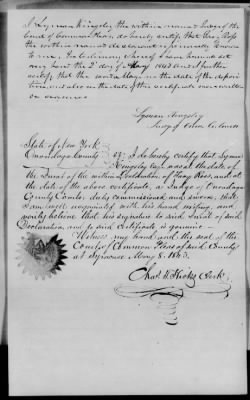 I Lyman Kingsley the within named Judge of the
Court of Common Pleas, do hereby certify that
Ross the within named declarant is personally known
to me. In testimony whereof I have hereunto set
my hand the 2d day of May 1843 and I further
certify that the word May in the date of the
and also in the date of this certificate was written
on erasures
Lyman Kingsley
Judge of
State of New York
Onondaga County ss: I do hereby certify that Lyman
Kingsley Esq. was at the date of
the Jurat of the within Declaration of Ross, and at
the date of the above certificate, a Judge of Onondaga
County Courts, duly commissioned and sworn; that
I am well acquainted with his hand writing, and
verily believe that his signature to said Jurat of said
Declaration, and to said Certificate is genuine.
Witness my hand and the seal of the
Court of Common Pleas of said County
at Syracuse May 8. 1843.
Chas. T. Hicks Clerk